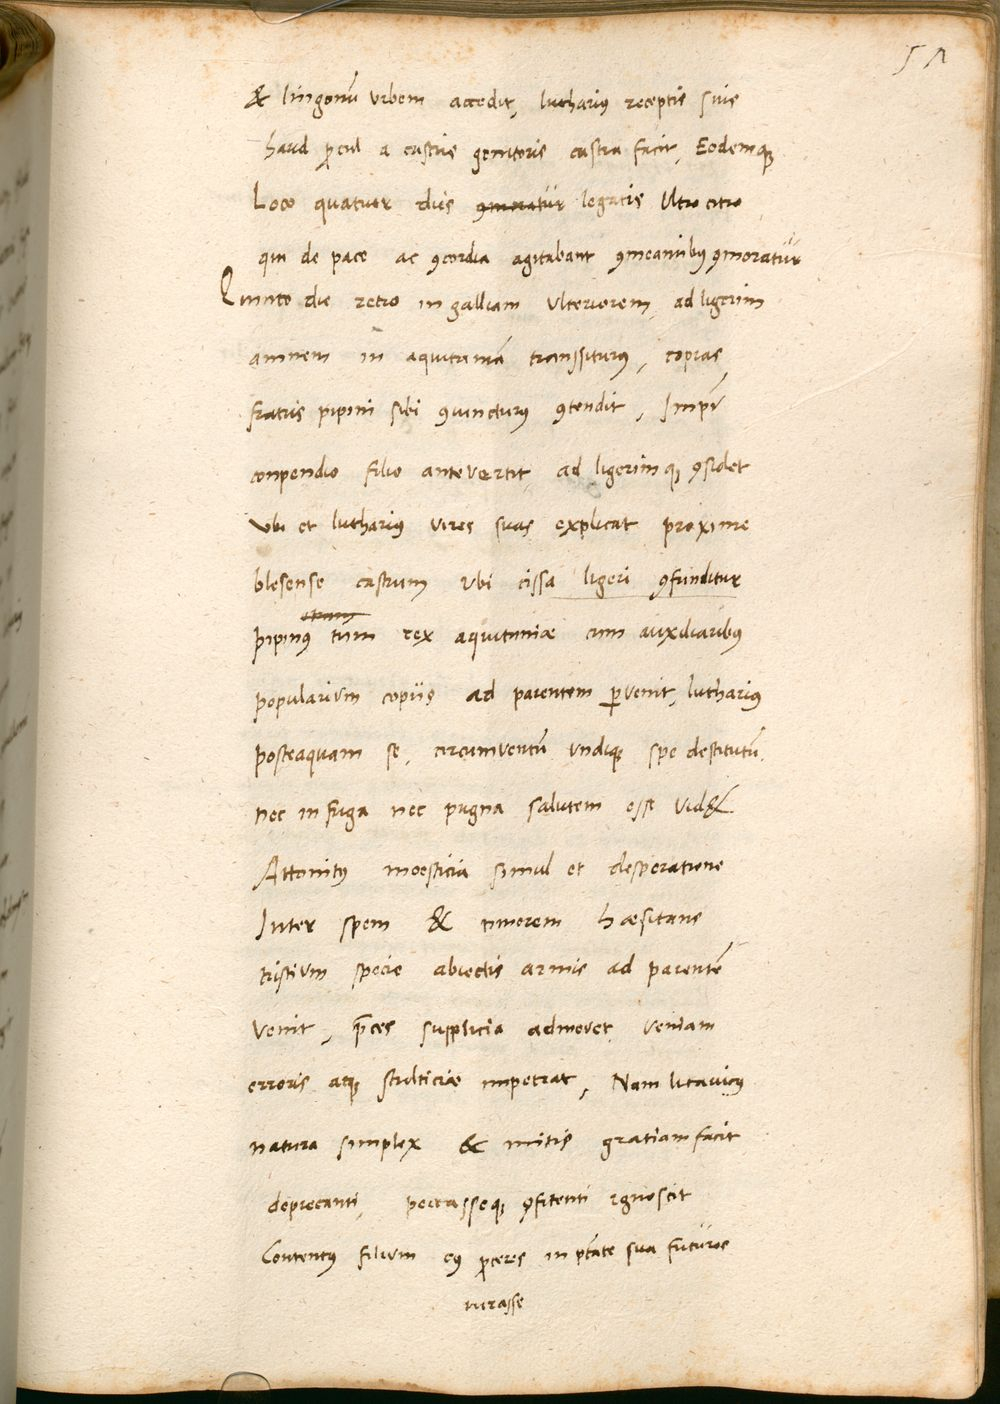 & lingonū vrbem accedit, lutharius receptis suis
haud ꝓcul a castris genitoris castra facit, Eodemqꝫ
Loco quatuor diis ꝯmoratur legatis Vltro citro
qui de pace ac ꝯcordia agitabant ꝯmeantibꝰ ꝯmoratur
Quinto die retro in galliam Vlteriorem, ad ligerim
amnem in aquitaniā transsiturꝰ, copias
fratris pipini sibi ꝯiuncturꝰ ꝯtendit, Impr̄
conpendio filio antevertit, ad ligerimqꝫ ꝯsidet
vbi et lutharius vires suas explicat proxime
blesense castrum vbi cissa ligeri ꝯfunditur
pipinꝰ tum rex aquitaniæ cum auxiliaribꝰ
popularium copiis ad parentem ꝑvenit, luthariꝰ
posteaquam se, circumventū vndiqꝫ spe destitutū,
nec in fuga nec pugna salutem esse vid&
Attonitꝰ moesticia simul et desperatione
Inter spem & timorem hæsitans
tristium specie abiectis armis ad parentē
venit, p̄ces supplicia admovet, veniam
erroris atqꝫ stulticiæ impetrat, Nam litauicꝰ
natura simplex & mitis gratiam facit
deprecanti, peccasseqꝫ ꝯfitenti ignoscit
Contentꝰ filium eiꝰ ꝓceres in ptāte sua futuros
iurasse